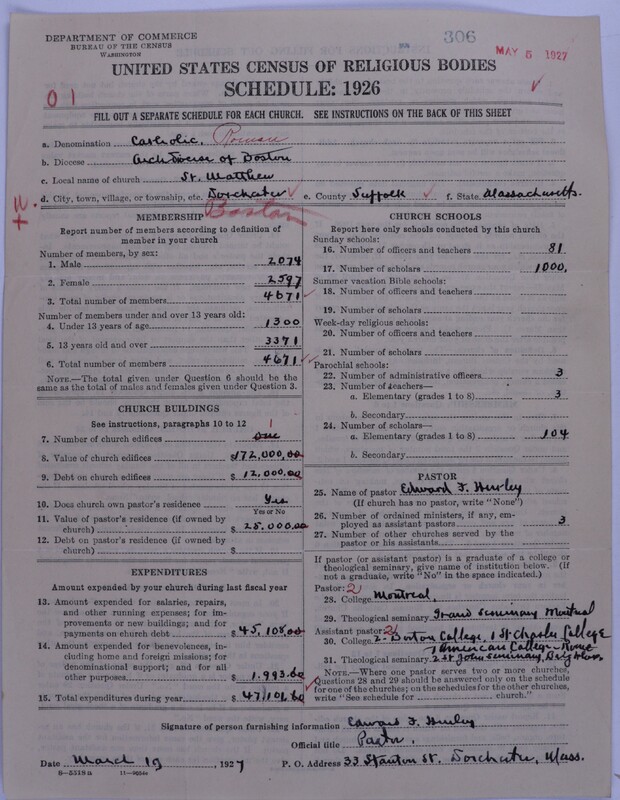 DEPARTMENT OF COMMERCE
BUREAU OF THE CENSUS
WASHINGTON
306
MAY 5 1927
UNITED STATES CENSUS OF RELIGIOUS BODIES
SCHEDULE: 1926
01
FILL OUT A SEPARATE SCHEDULE FOR EACH CHURCH. SEE INSTRUCTIONS ON THE BACK OF THIS SHEET
a. Denomination Catholic, Roman
b. Diocese Archdiocese of Boston
c. Local name of church St. Matthew
d. City, town, village, or township, etc. Dorchester e. County Suffolk f. State Massachusetts.
Boston
MEMBERSHIP
Report number of members according to definition of
member in your church
Number of members, by sex:
1. Male 2074
2. Female 2597
3. Total number of members 4671
Number of members under and over 13 years old:
4. Under 13 years of age 1300
5. 13 years old and over 3371
6. Total number of members 4671
NOTE.—The total given under Question 6 should be the
same as the total of males and females given under Question 3.
CHURCH BUILDINGS
See instructions, paragraphs 10 to 12
7. Number of church edifices One 1
8. Value of church edifices $172,000,00
9. Debt on church edifices $ 12,000,00
10. Does church own pastor's residence Yes
Yes or No
11. Value of pastor's residence (if owned by
church) $ 25,000.00
12. Debt on pastor's residence (if owned by
church) $
EXPENDITURES
Amount expended by your church during last fiscal year
13. Amount expended for salaries, repairs,
and other running expenses; for im-
provements or new buildings; and for
payments on church debt $ 45,108,00
14. Amount expended for benevolences, in-
cluding home and foreign missions; for
denominational support; and for all
other purposes $ 1,993.60
15. Total expenditures during year $ 47,101.60
CHURCH SCHOOLS
Report here only schools conducted by this church
Sunday schools:
16. Number of officers and teachers 81
17. Number of scholars 1000,
Summer vacation Bible schools:
18. Number of officers and teachers
19. Number of scholars
Week-day religious schools:
20. Number of officers and teachers
21. Number of scholars
Parochial schools:
22. Number of administrative officers 3
23. Number of teachers—
a. Elementary (grades 1 to 8) 3
b. Secondary
24. Number of scholars—
a. Elementary (grades 1 to 8) 104
b. Secondary
PASTOR
25. Name of pastor Edward F. Hurley
(If church has no pastor, write "None")
26. Number of ordained ministers, if any, em-
ployed as assistant pastors 3
27. Number of other churches served by the
pastor or his assistants
If pastor (or assistant pastor) is a graduate of a college or
theological seminary, give name of institution below. (If
not a graduate, write "No" in the space indicated.)
Pastor: 2
28. College Montreal,
29. Theological seminary Grand Seminary Montreal
Assistant pastor: 2
30. College 2- Boston College, 1 St Charles College
1 American College - Rome
31. Theological seminary 2 St John Seminary, Brighton,
NOTE.—Where one pastor serves two or more churches,
Questions 28 and 29 should be answered only on the schedule
for one of the churches; on the schedules for the other churches,
write "See schedule for church."
Signature of person furnishing information Edward F. Hurley
Official title Pastor,
Date March 19, 1927 P. O. Address 33 Stanton St. Dorchester, Mass.